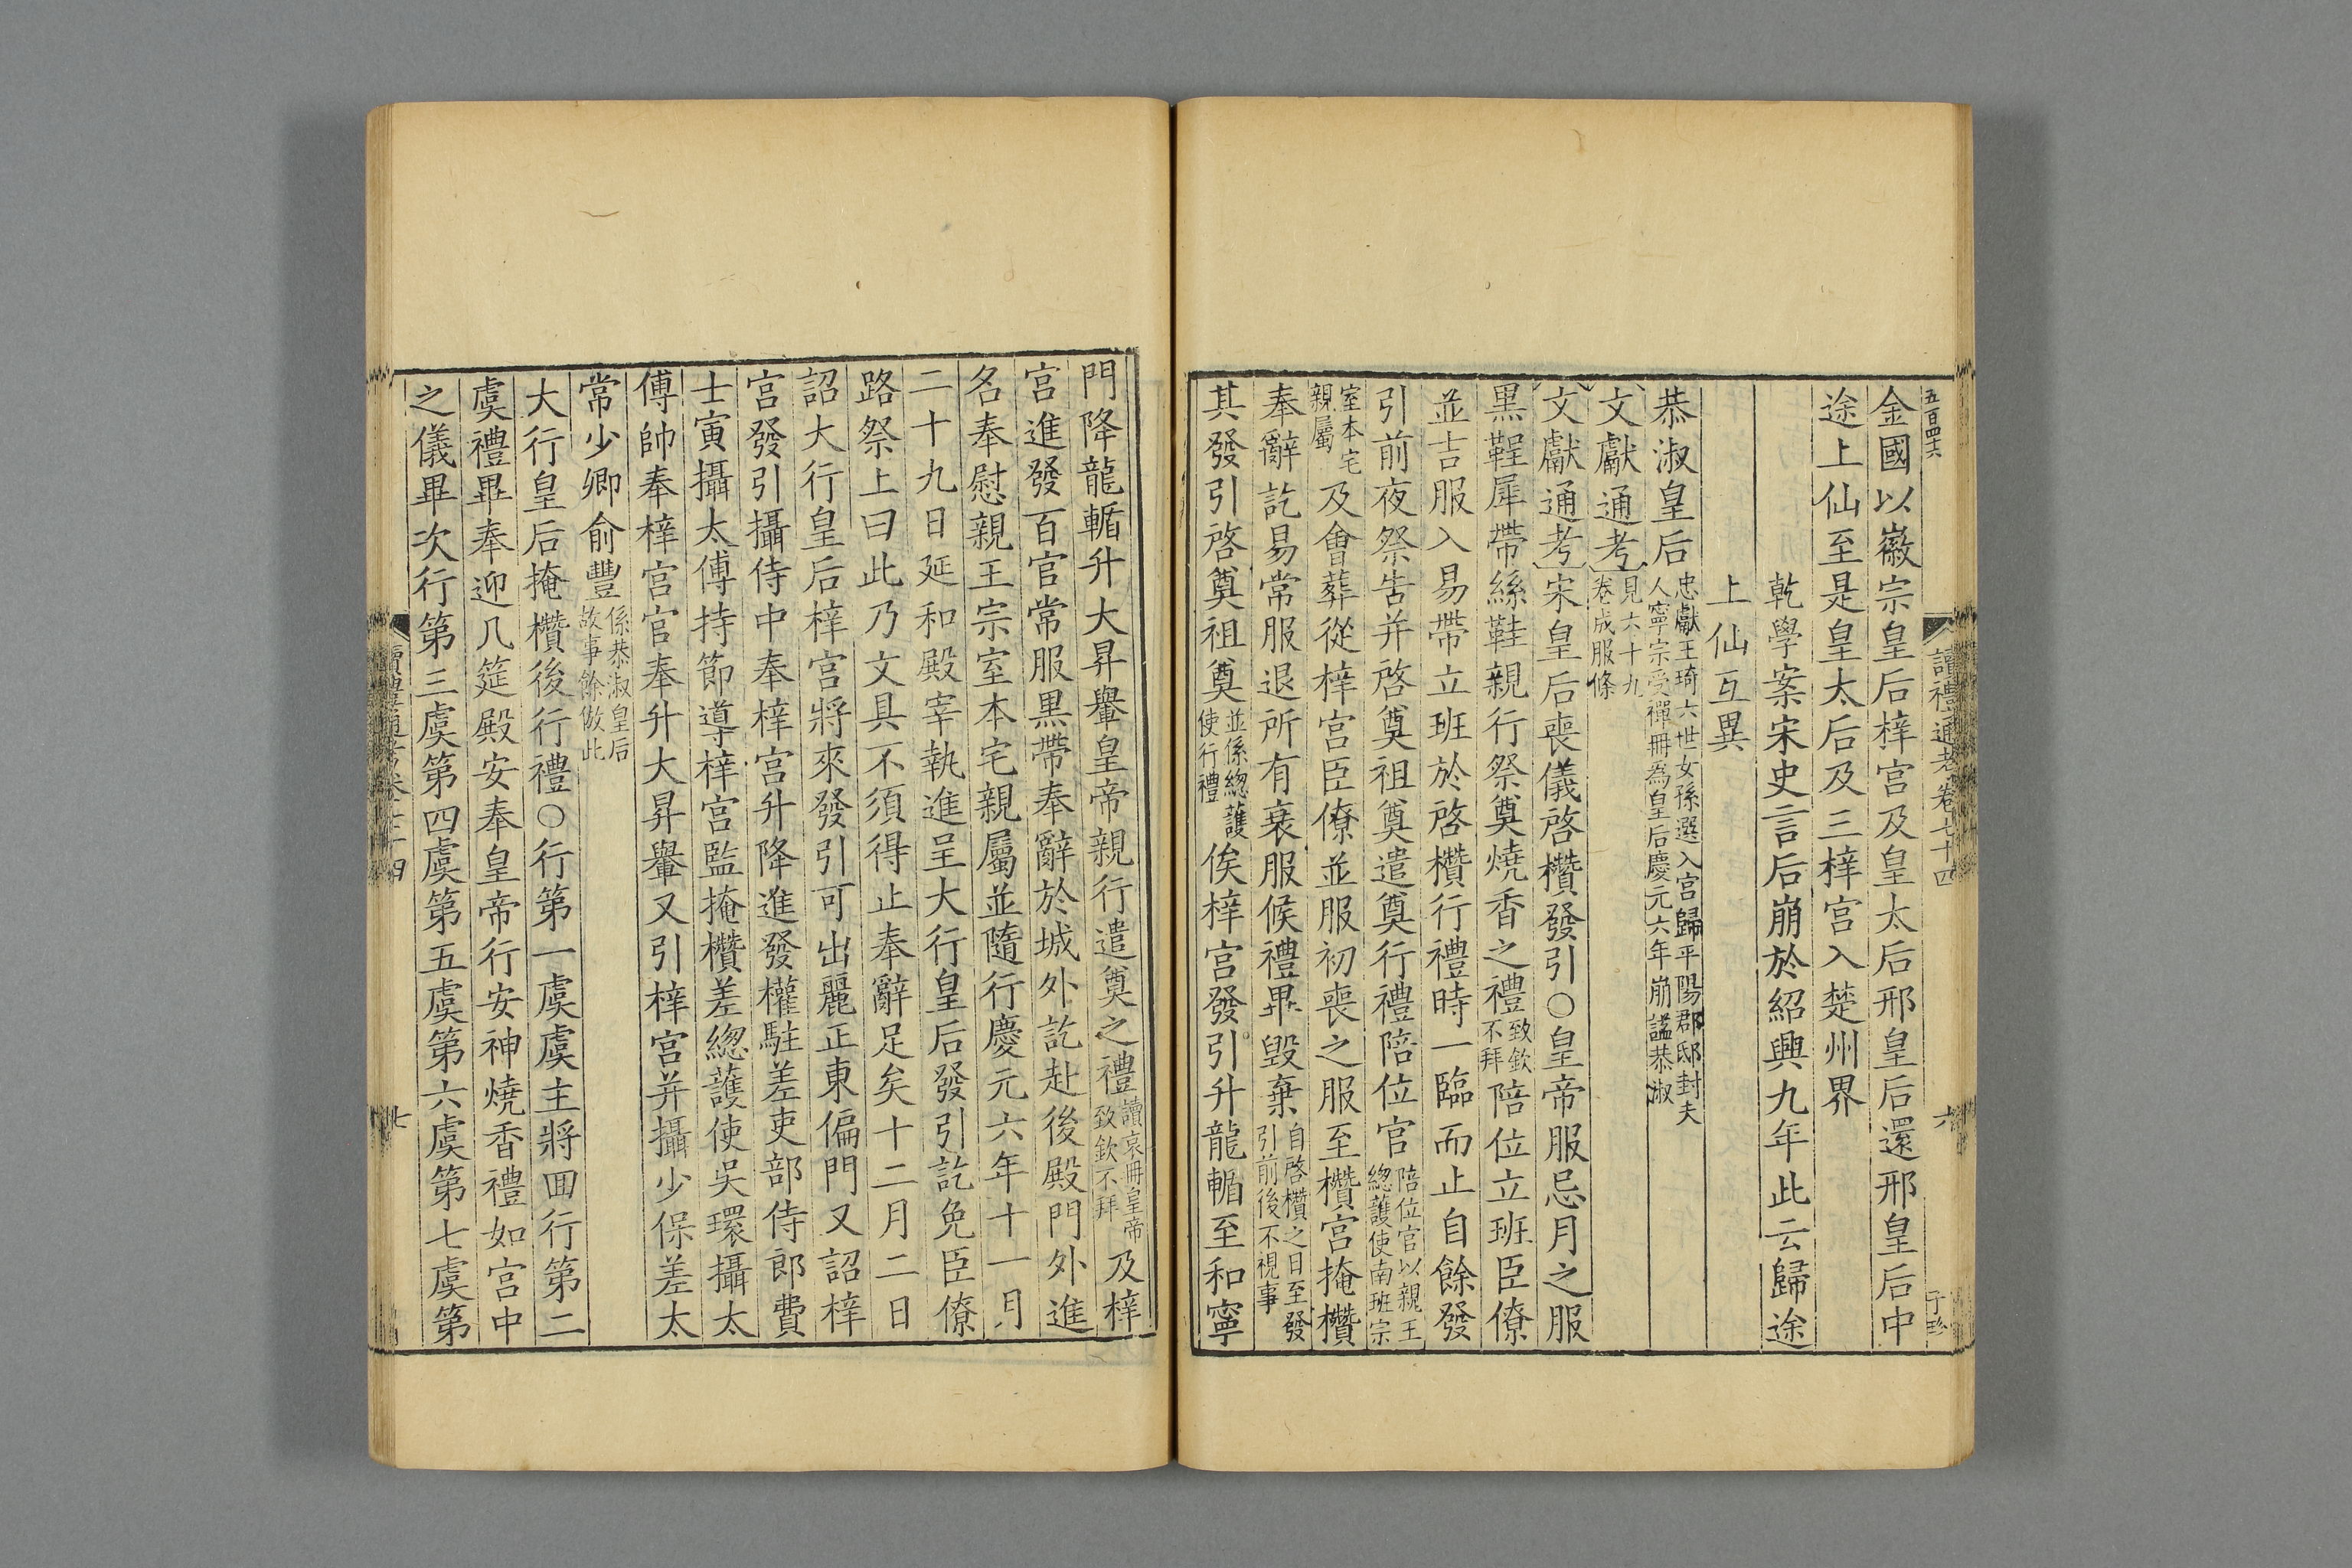 五百四六
讀禮通考卷七十四
六
金國以徽宗皇后梓宮及皇太后邢皇后還邢皇后中
途上仙至是皇太后及三梓宮入楚州界
乾學案宋史言后崩於紹興九年此云歸途
上仙互異
恭淑皇后忠獻王琦六世女孫選入宮歸平陽郡邸封夫人寧宗受禪冊為皇后慶元六年崩謚恭淑
文獻通考見六十九卷成服條
文獻通考宋皇后喪儀啓欑發引○皇帝服忌月之服
黑鞓犀帶絲鞋親行祭奠燒香之禮致欽不拜陪位立班臣僚
並吉服入易帶立班於啓欑行禮時一臨而止自餘發
引前夜祭告并啓奠祖奠遣奠行禮陪位官陪位官以親王總護使南班宗
室本宅親屬及會葬從梓宮臣僚並服初喪之服至欑宮掩欑
奉辭訖易常服退所有衰服候禮畢毀棄自啓欑之日至發引前後不視事
其發引啓奠祖奠並係總護使行禮俟梓宮發引升龍輴至和寧
門降龍輴升大昇轝皇帝親行遣奠之禮讀哀冊皇帝致欽不拜及梓
宮進發百官常服黑帶奉辭於城外訖赴後殿門外進
名奉慰親王宗室本宅親屬並隨行慶元六年十一月
二十九日延和殿宰執進呈大行皇后發引訖免臣僚
路祭上曰此乃文具不須得止奉辭足矣十二月二日
詔大行皇后梓宮將來發引可出麗正東偏門又詔梓
宮發引攝侍中奉梓宮升降進發權駐差吏部侍郎費
士寅攝太傅持節導梓宮監掩欑差總護使吳環攝太
傅帥奉梓宮官奉升大昇轝又引梓宮并攝少保差太
常少卿俞豐係恭淑皇后故事餘倣此
大行皇后掩欑後行禮○行第一虞虞主將回行第二
虞禮畢奉迎几筵殿安奉皇帝行安神燒香禮如宮中
之儀畢次行第三虞第四虞第五虞第六虞第七虞第
七